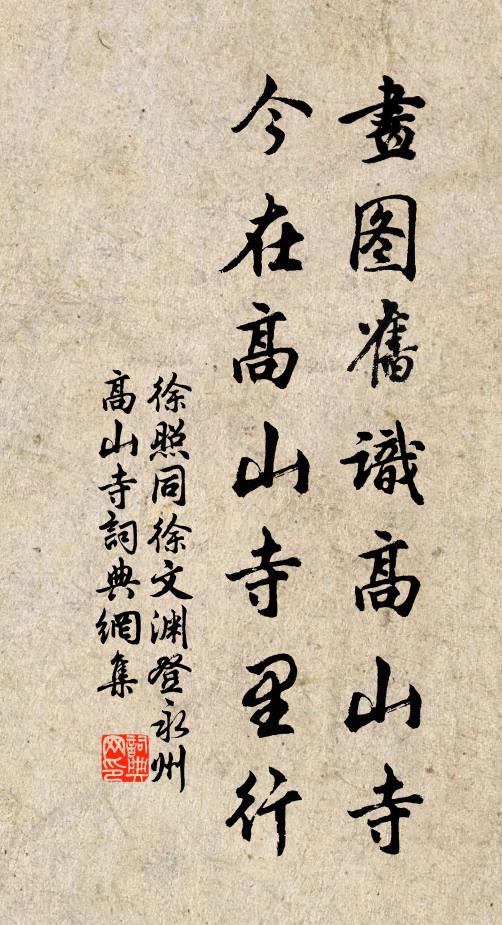 畫图舊識高山寺
今在高山寺里行
徐照同徐文渊登永州
高山寺詞典網集
詞典网印